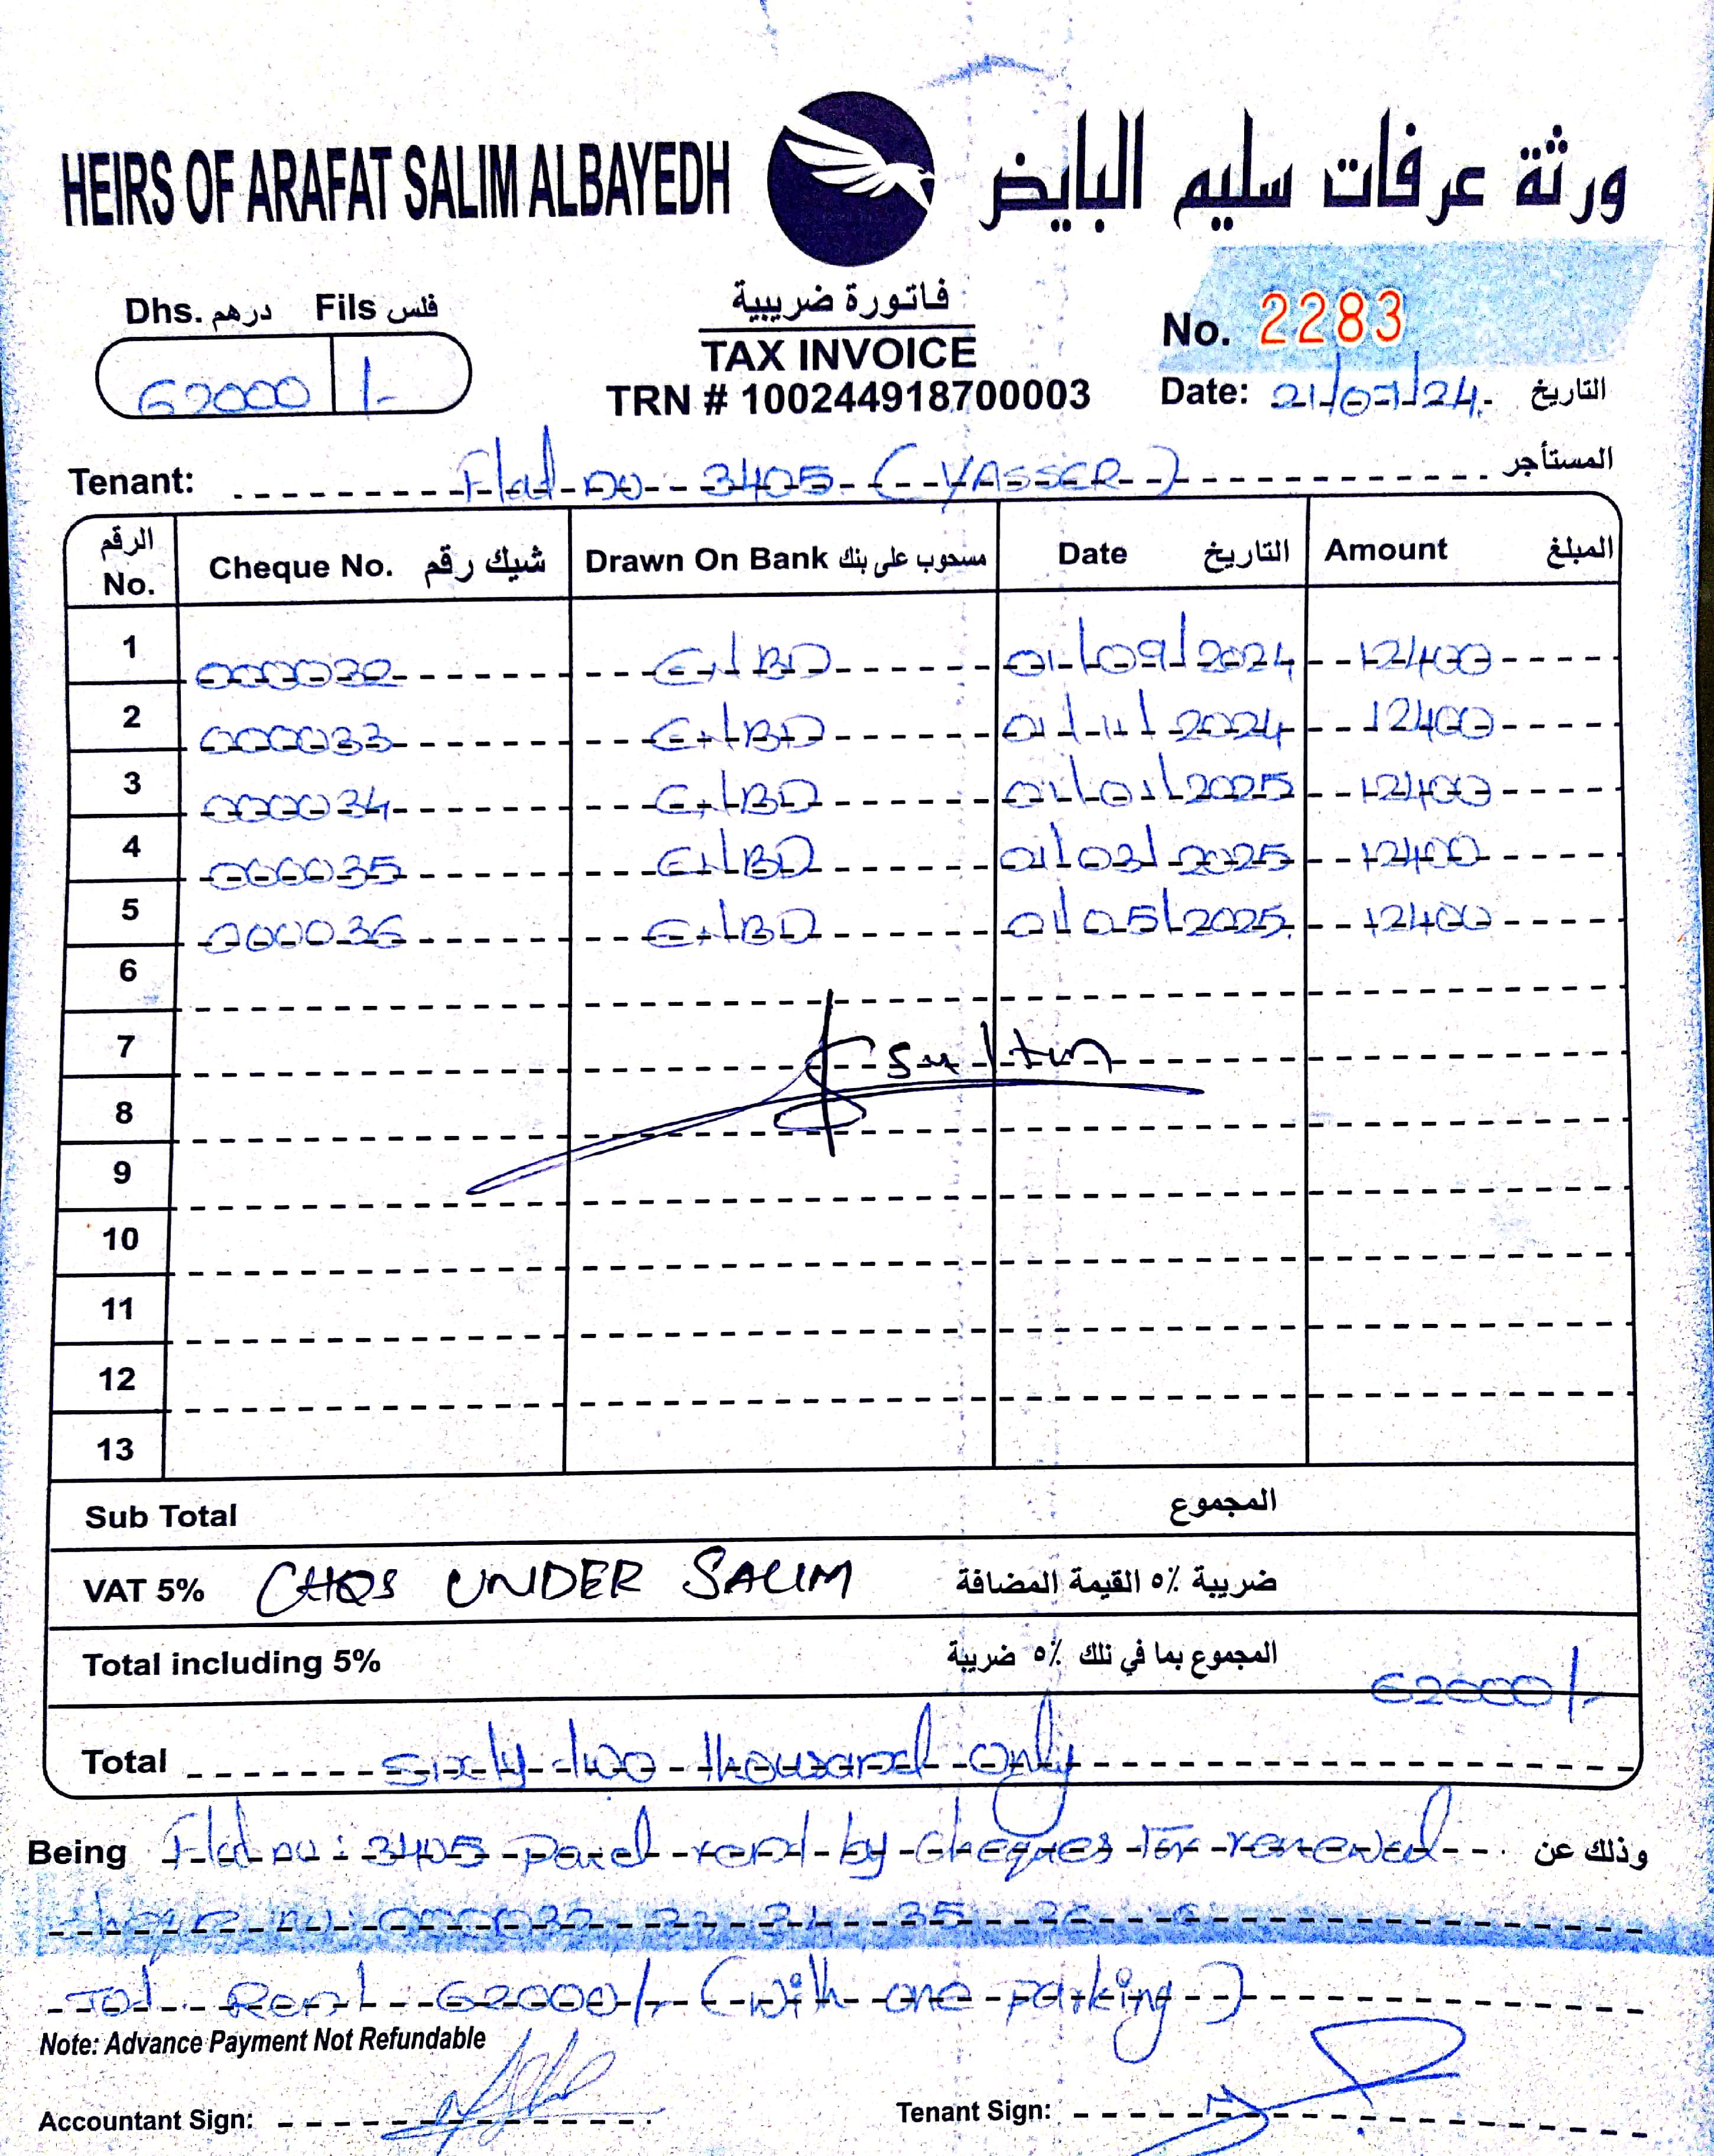 HEIRS OF ARAFAT SALIM ALBAYEDH ورثة عرفات سليم البايض
Dhs. درهم Fils فلس
62000 /-
فاتورة ضريبية
TAX INVOICE
TRN # 100244918700003
No. 2283
Date: 21/07/24 التاريخ
Tenant: Flat no 3405 (YASSER) المستأجر
الرقم No. Cheque No. شيك رقم Drawn On Bank مسحوب على بنك Date التاريخ Amount المبلغ
1 000032 ENBD 01/09/2024 12400
2 000033 ENBD 01/11/2024 12400
3 000034 ENBD 01/01/2025 12400
4 000035 ENBD 01/03/2025 12400
5 000036 ENBD 01/05/2025 12400
6
7
8
9
10
11
12
13
Sub Total المجموع
VAT 5% CHQS UNDER SALIM ضريبة ٥٪ القيمة المضافة
Total including 5% المجموع بما في تلك ٥٪ ضريبة 62000/-
Total sixty two thousand only
Being Flat no: 3405 paid rent by cheques for renewed وذلك عن
cheque no: 000032 33 34 35 36
Tot Rent 62000/- (with one parking)
Note: Advance Payment Not Refundable
Accountant Sign: Tenant Sign: